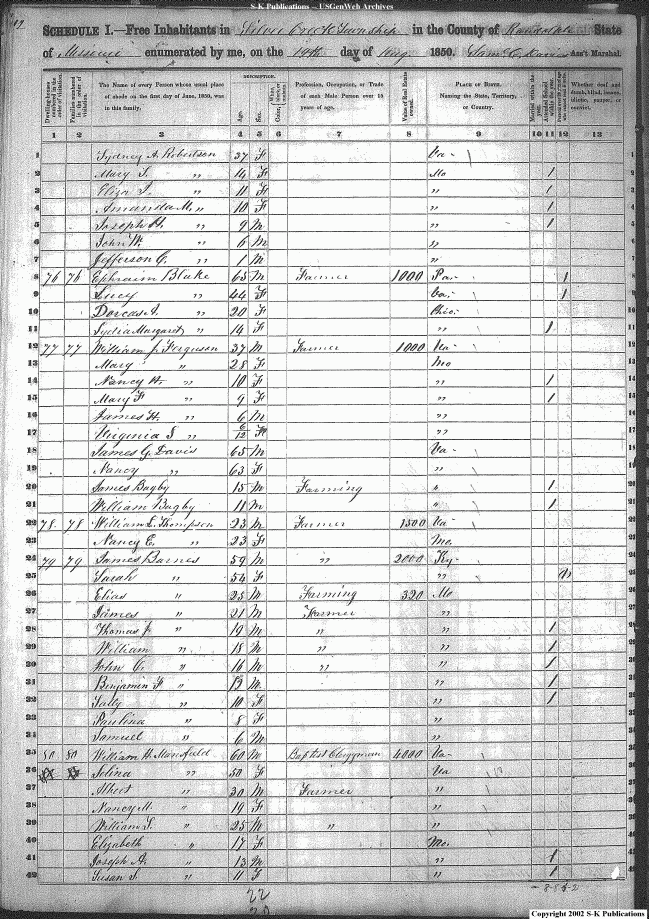 S-K Publications -- USGenWeb Archives
SCHEDULE I.—Free Inhabitants in Silver Creek Township in the County of Randolph State
of Missouri enumerated by me, on the 19th day of Aug 1850. Ass't Marshal.
DESCRIPTION.
The Name of every Person whose usual place of abode on the first day of June, 1850, was in this family.
Age.
Sex.
Profession, Occupation, or Trade of each Male Person over 15 years of age.
Value of Real Estate owned.
PLACE OF BIRTH. Naming the State, Territory, or Country.
Whether deaf and dumb, blind, insane, idiotic, pauper, or convict.
1 2 3 4 5 6 7 8 9 10 11 12 13
1 Sydney A. Robertson 37 F Va
2 Mary S. " 14 F Mo 1
3 Eliza J. " 11 F " 1
4 Amanda M. " 10 F " 1
5 Joseph H. " 9 M " 1
6 John W. " 6 M "
7 Jefferson C. " 1 M "
8 76 76 Ephraim Blake 65 M Farmer 1000 Pa 1
9 Lucy " 44 F Va 1
10 Dorcas A. " 20 F Ohio
11 Lydia Margaret " 14 F " 1
12 77 77 William J. Ferguson 37 M Farmer 1000 Va
13 Mary " 28 F Mo
14 Nancy A. " 10 F " 1
15 Mary F " 9 F " 1
16 James H. " 6 M "
17 Virginia S " 6/12 F "
18 James G. Davis 65 M Va
19 Nancy " 63 F "
20 James Bagby 15 M Farming " 1
21 William Bagby 11 M " 1
22 78 78 William L. Thompson 23 M Farmer 1500 Va
23 Nancy E. " 23 F Mo.
24 79 79 James Barnes 59 M " 2000 Ky
25 Sarah " 54 F "
26 Elias " 25 M Farming 320 Mo
27 James " 21 M Farmer "
28 Thomas J. " 19 M " " 1
29 William " 18 M " " 1
30 John C. " 16 M " " 1
31 Benjamin F " 13 M " 1
32 Sally " 10 F " 1
33 Paulina " 8 F "
34 Samuel " 6 M "
35 80 80 William H. Mansfield 60 M Baptist Clergyman 4000 Va
36 Selina " 50 F Va
37 Albert " 30 M Farmer "
38 Nancy M. " 19 F "
39 William S. " 25 M " "
40 Elizabeth " 17 F Mo.
41 Joseph A. " 13 M " 1
42 Susan S. " 11 F " 1
22
Copyright 2002 S-K Publications